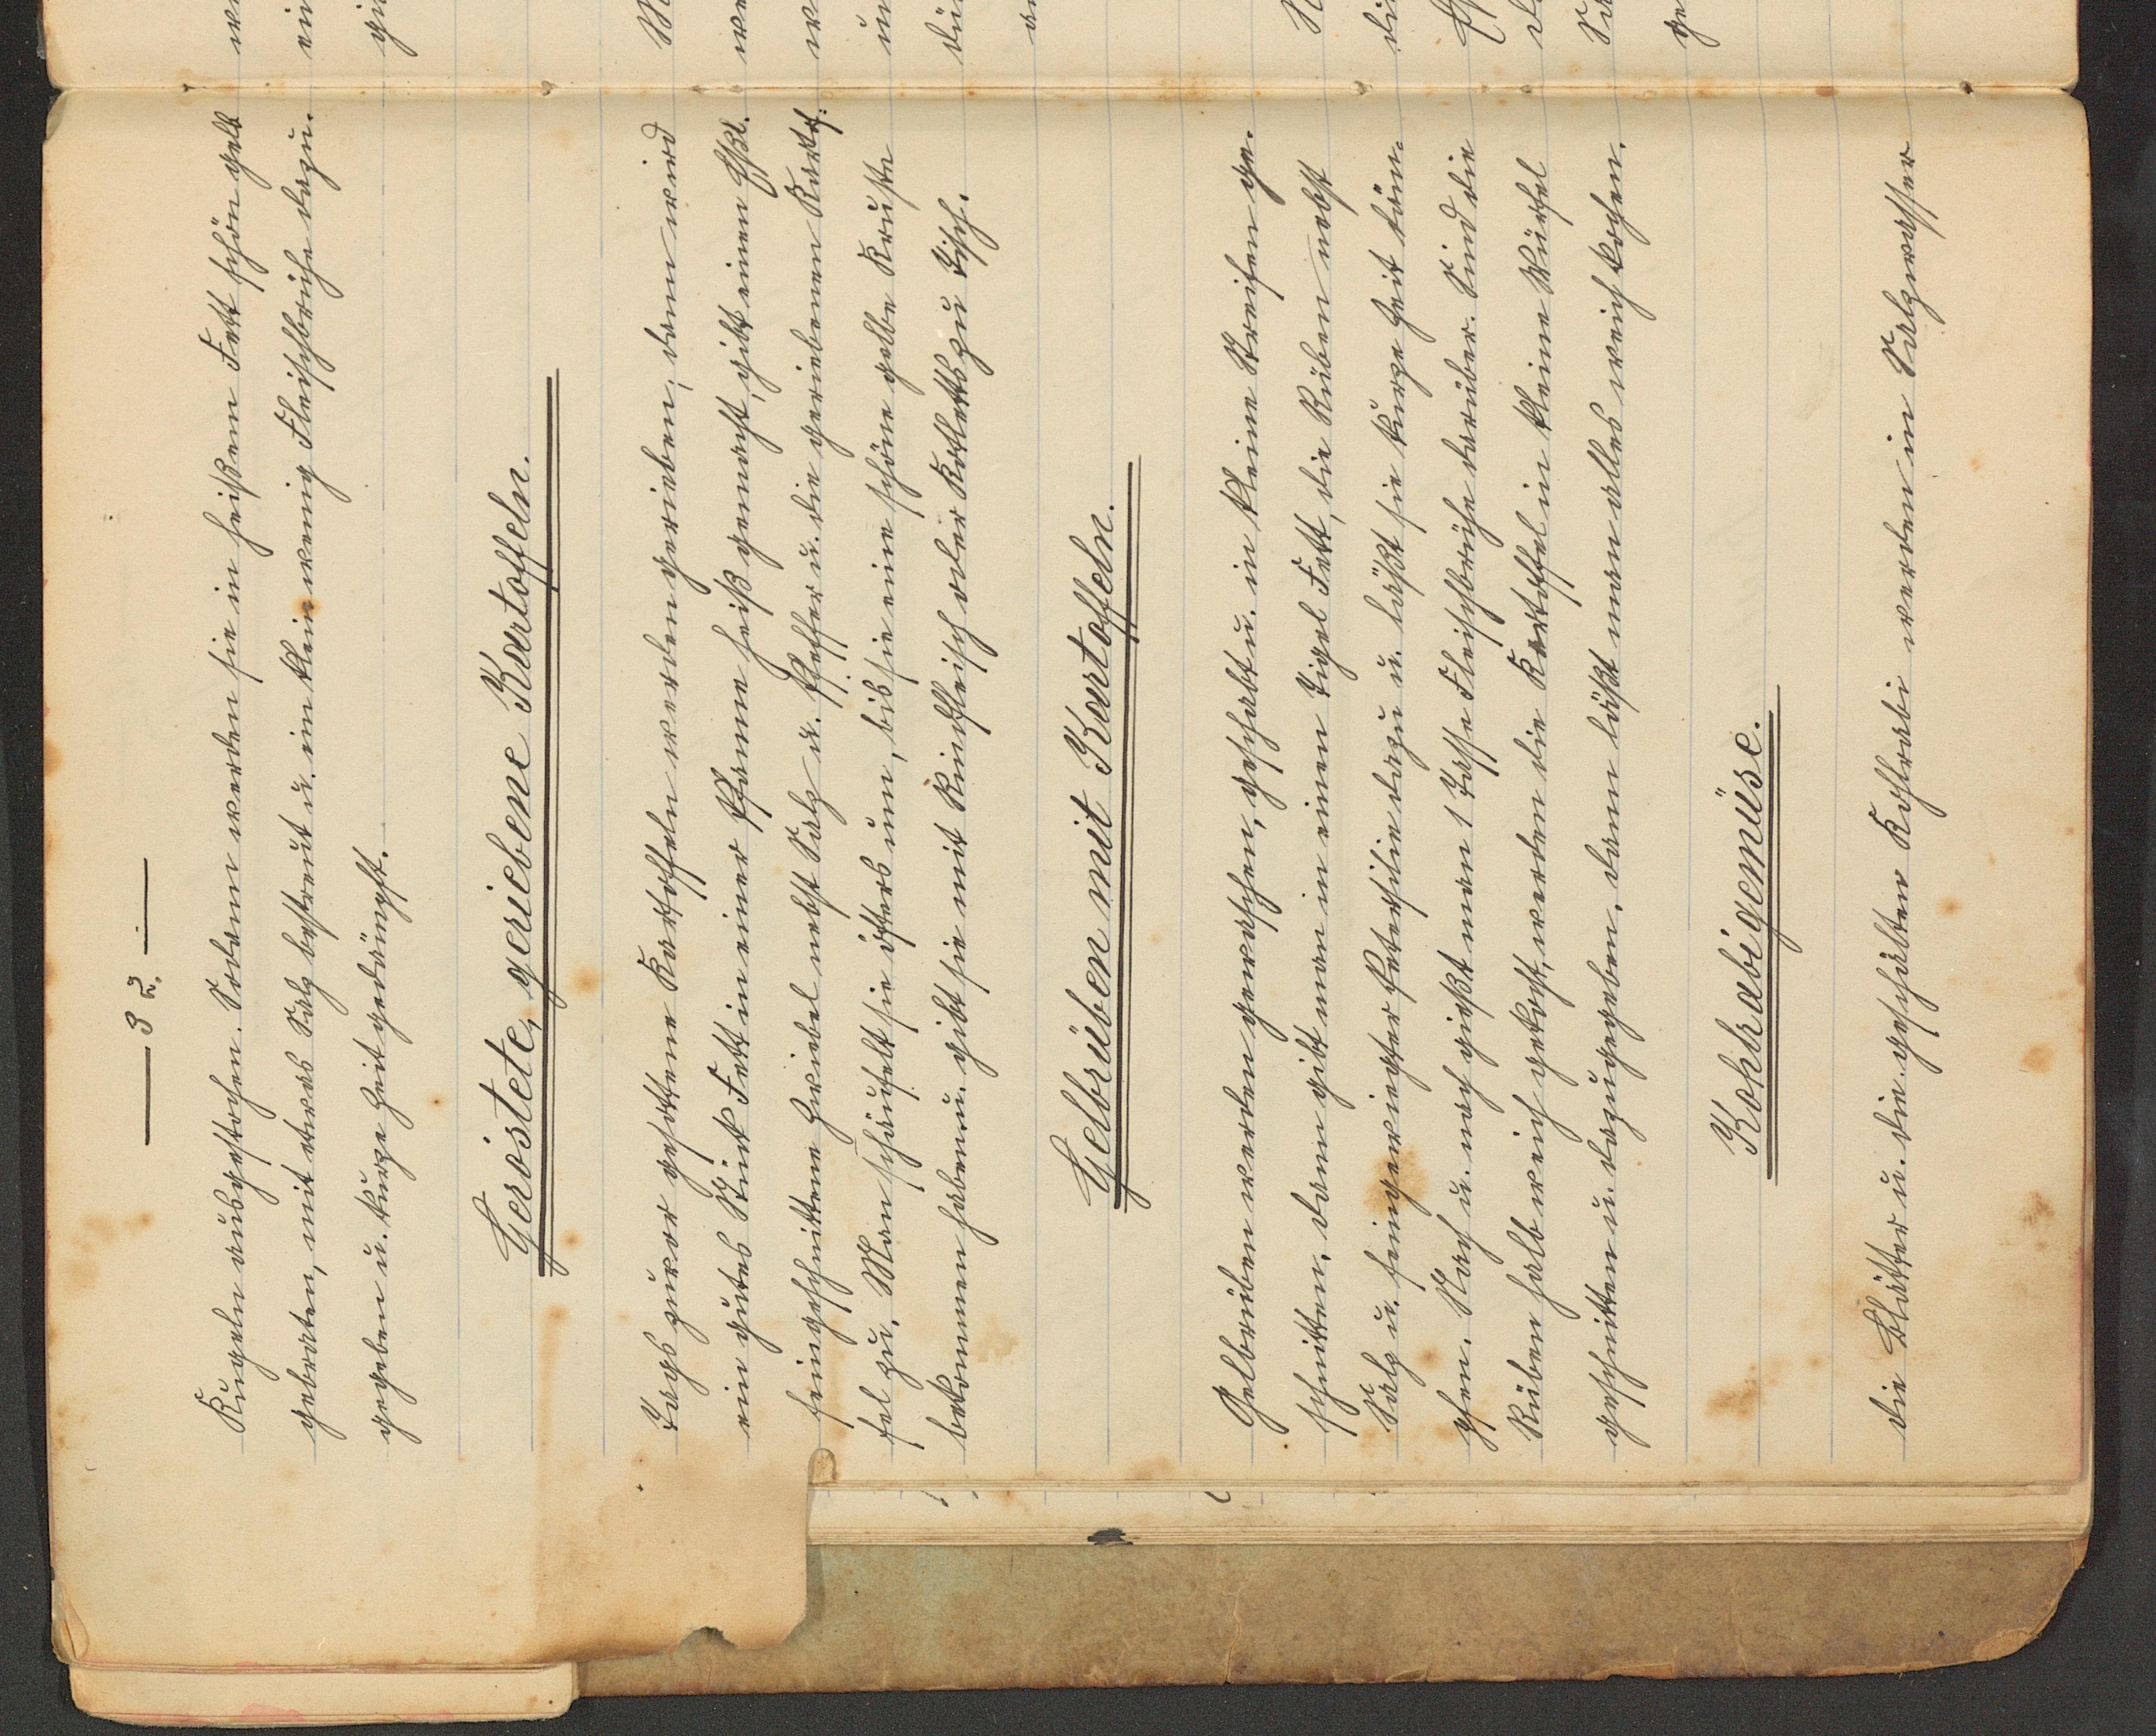 — 32. —
Kugeln ausgestochen. Sodann werden sie in heißem Fett schön gelb
gebraten, mit etwas Salz bestreut u. ein klein wenig Fleischbrühe dazu-
gegeben u. kurze Zeit gedämpft.
Geröstete, geriebene Kartoffeln.
Tags zuvor gesottene Kartoffeln werden gerieben, dann wird
ein gutes Stück Fett in einer Pfanne heiß gemacht, gibt einen Eßl.
feingeschnittene Zwiebel nebst Salz u. Pfeffer u. die geriebenen Kartof-
fel zu. Man schäufelt sie öfters um, bis sie eine schöne gelbe Kruste
bekommen haben u. gibt sie mit Rindfleisch oder Kotletts zu Tisch.
Gelbrüben mit Kartoffeln.
Gelbrüben werden gewaschen, geschabt u. in kleine Streifen ge-
schnitten, dann gibt man in einen Tigel Fett, die Rüben nebst
Salz u. feingewiegter Petersilie dazu u. läßt sie kurze Zeit dün-
sten. Nach u. nach gießt man 1 Tasse Fleischbrühe darüber. Sind die
Rüben halb weich gekocht, werden die Kartoffel in kleine Würfel
geschnitten u. dazugegeben, dann läßt man alles weich kochen.
Kohlrabigemüse.
Die Blätter u. die geschälten Kohlrabi werden in Salzwasser